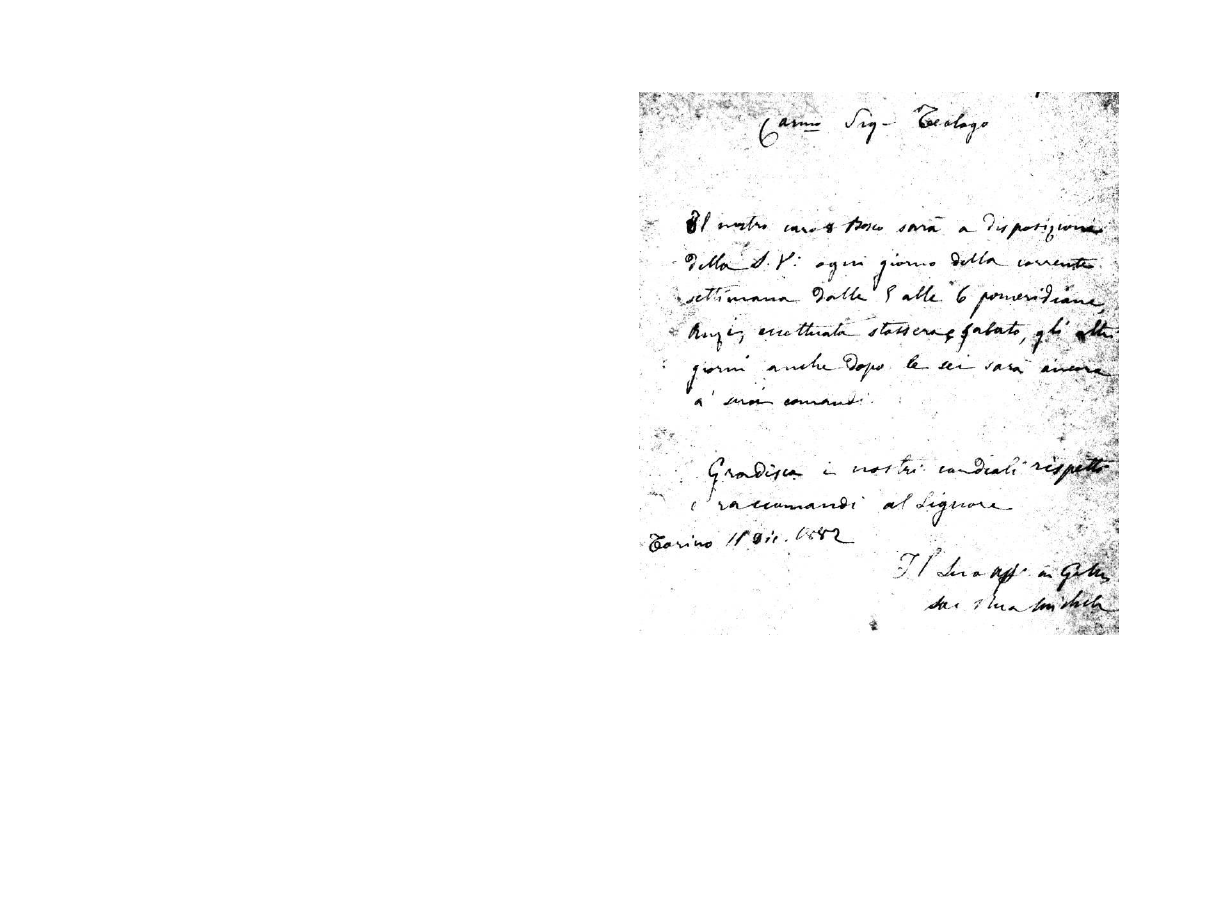 Carmo Sig- Teologo
Il nostro caro D Bosco sarà a disposizione
della S. V. ogni giorno della corrente
settimana dalle 5 alle 6 pomeridiane,
Anzi, eccettuata stassera e sabato, gli altri
giorni anche dopo le sei sarà ancora
a' suoi comandi.
Gradisca i nostri cordiali rispetti
e raccomandi al Signore
Torino 11 Dic. 1882
Il Suo aff. in G.
Sac Rua Michele